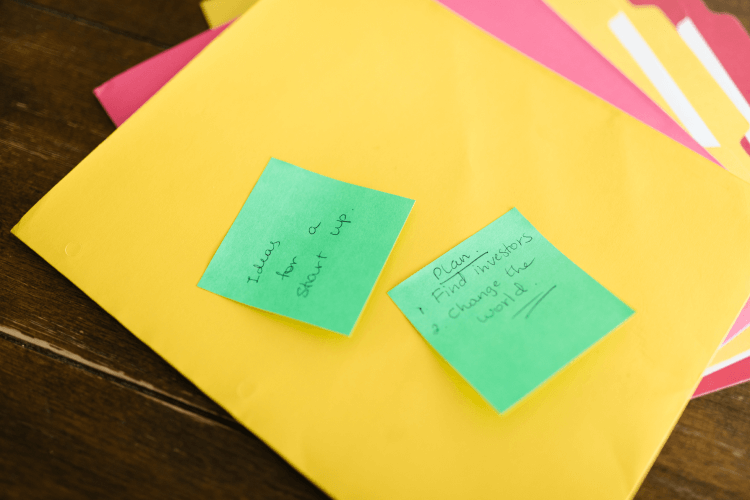 Ideas
for a
start up.
Plan.
1 Find investors
2. Change the
world.